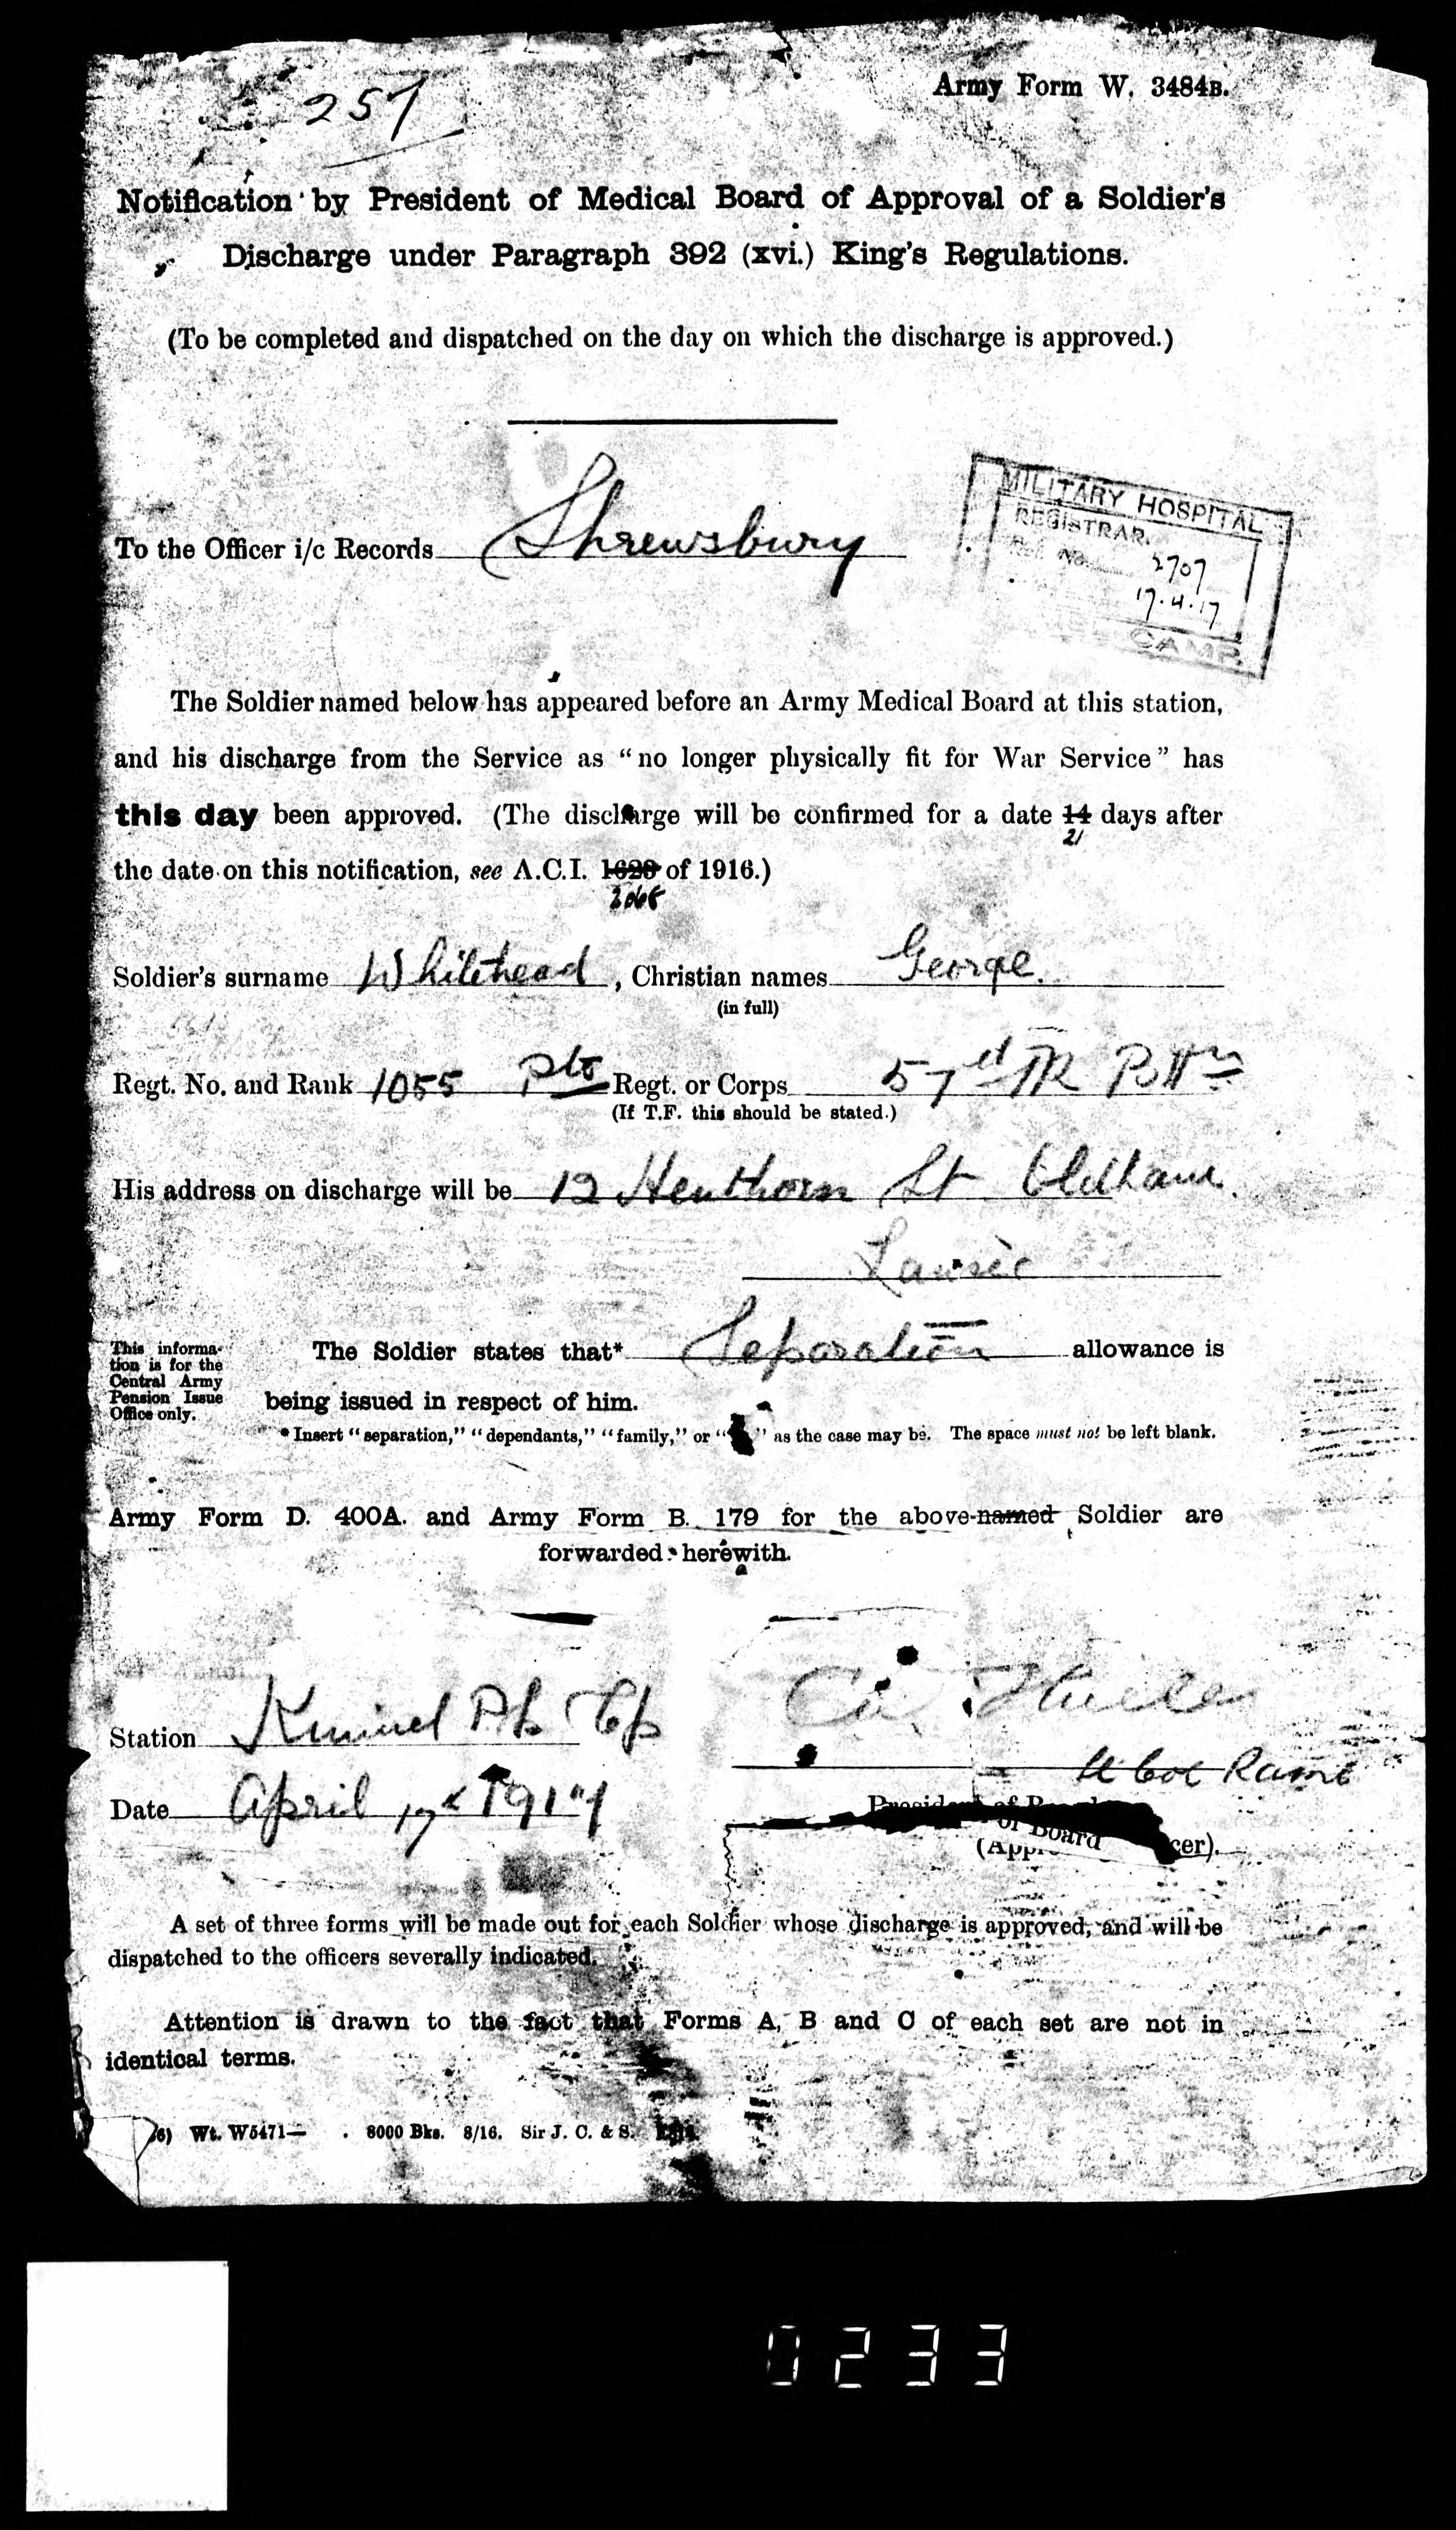 257
Army Form W. 3484B.
Notification by President of Medical Board of Approval of a Soldier's
Discharge under Paragraph 392 (xvi.) King's Regulations.
(To be completed and dispatched on the day on which the discharge is approved.)
To the Officer i/c Records Shrewsbury
MILITARY HOSPITAL
REGISTRAR.
Ref. No. 2707
17.4.17
CAMP.
The Soldier named below has appeared before an Army Medical Board at this station,
and his discharge from the Service as "no longer physically fit for War Service" has
this day been approved. (The discharge will be confirmed for a date 14 days after
21
the date on this notification, see A.C.I. 1628 of 1916.)
Soldier's surname Whitehead, Christian names George.
(in full)
Regt. No. and Rank 1055 Pte Regt. or Corps 57th TR Bttn
(If T.F. this should be stated.)
His address on discharge will be 12 Henthorn St Oldham.
Lancs
This informa- The Soldier states that* Separation allowance is
tion is for the
Central Army
Pension Issue being issued in respect of him.
Office only.
*Insert "separation," "dependants," "family," or " " as the case may be. The space must not be left blank.
Army Form D. 400A. and Army Form B. 179 for the above-named Soldier are
forwarded herewith.
Station Kinmel Pk Cp
Lt Col Ramc
Date April 17th 1917
President of Board
of Board
cer).
A set of three forms will be made out for each Soldier whose discharge is approved, and will be
dispatched to the officers severally indicated.
Attention is drawn to the fact that Forms A, B and C of each set are not in
identical terms.
6) Wt. W5471— 8000 Bks. 8/16. Sir J. C. & S.
0233